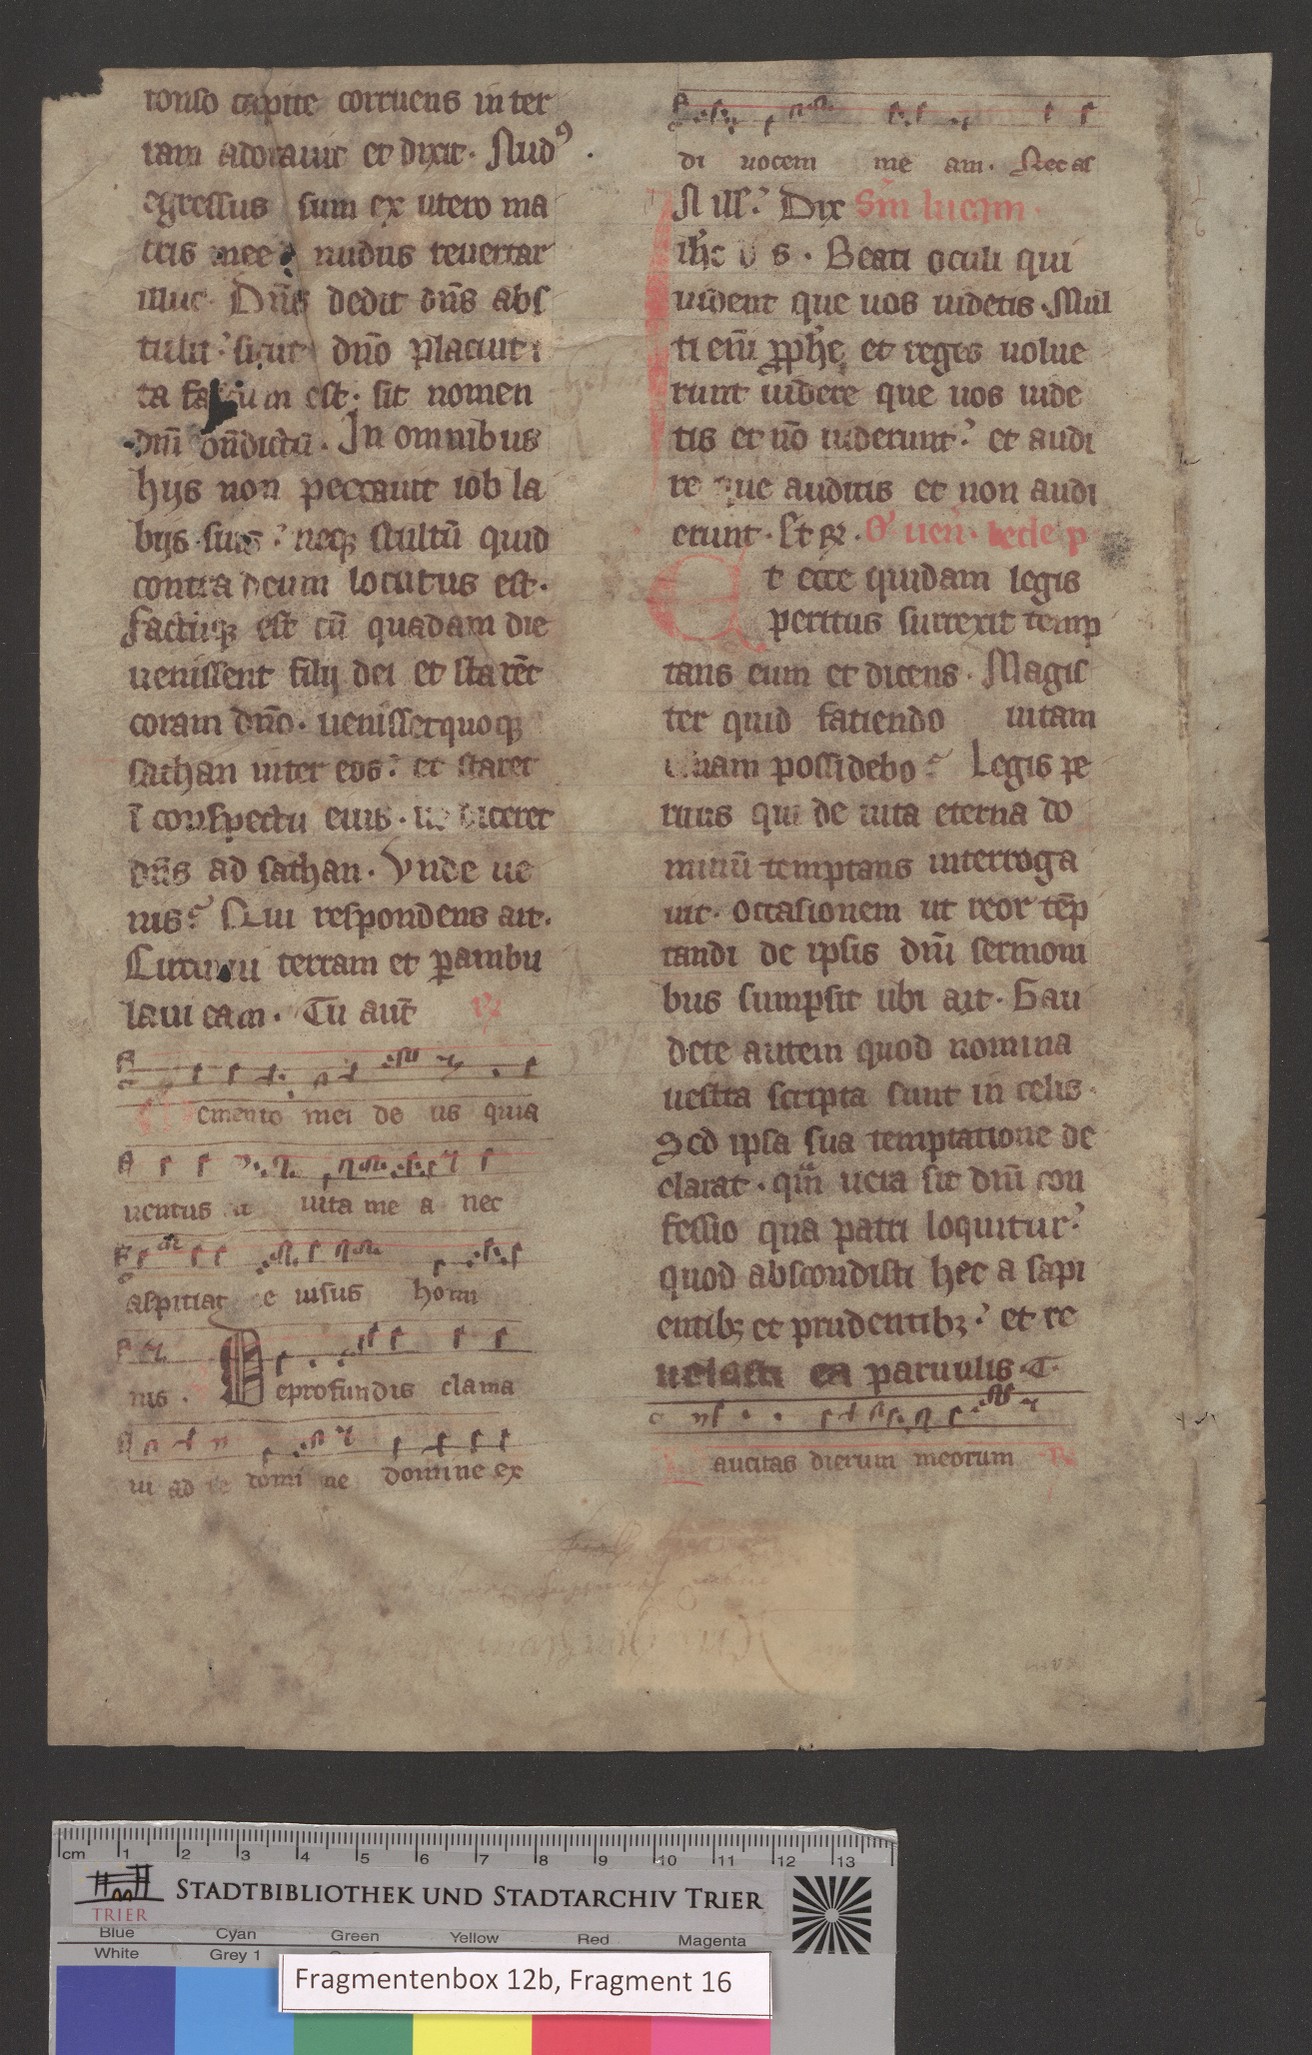 tonso capite corruens in ter
ram adorauit et dixit. Nudꝰ.
egressus sum ex utero ma
tris mee nudus reuertar
illuc. Dn̄s dedit dn̄s abs
tulit: sicut dn̄o placuit i
ta factum est. sit nomen
dn̄i bn̄dictū. In omnibus
hijs non peccauit iob la
bijs suis: neqꝫ stultū quid
contra deum locutus est.
factūqꝫ est cū quadam die
uenissent filij dei et starēt
coram dn̄o. uenisset quoqꝫ
sathan inter eos: et staret
ī conspectu eius. ut diceret
dn̄s ad sathan. Vnde ue
nis? Qui respondens ait.
Circuiui terram et ꝑambu
laui eam. Tu aut̄ ℟
emento mei de us quia
uentus uita me a nec
aspiciat e uisus homi
nis. Deprofundis clama
ui ad te domi ne domine ex
di uocem me am. Nec as
In ill'. Dix sm̄ lucam.
ih̄c d s. Beati oculi qui
uident que uos uidetis. Mul
ti eni̅ ꝓph̄e et reges uolue
runt uidere que uos uide
tis et nō uiderunt: et audi
re que auditis et non audi
erunt. Et ꝶ. O' uen̄. bede p
Et ecce quidam legis
peritus surrexit temp
tans eum et dicens. Magis
ter quid faciendo uitam
nam possidebo? Legis pe
ritus qui de uita eterna do
minū temptans interroga
uit. occasionem ut reor tēp
tandi de ipsis dn̄i sermoni
bus sumpsit ubi ait. Gau
dete autem quod nomina
uestra scripta sunt in celis.
Sed ipsa sua temptatione de
clarat. qm̄ uera sit dn̄i con
fessio qua patri loquitur:
quod abscondisti hec a sapi
entibꝫ et prudentibꝫ: et re
uelasti ea paruulis. T.
aucitas dierum meorum ℟
cm 1 2 3 4 5 6 7 8 9 10 11 12 13
TRIER
STADTBIBLIOTHEK UND STADTARCHIV TRIER
Blue Cyan Green Yellow Red Magenta
White Grey 1
Fragmentenbox 12b, Fragment 16